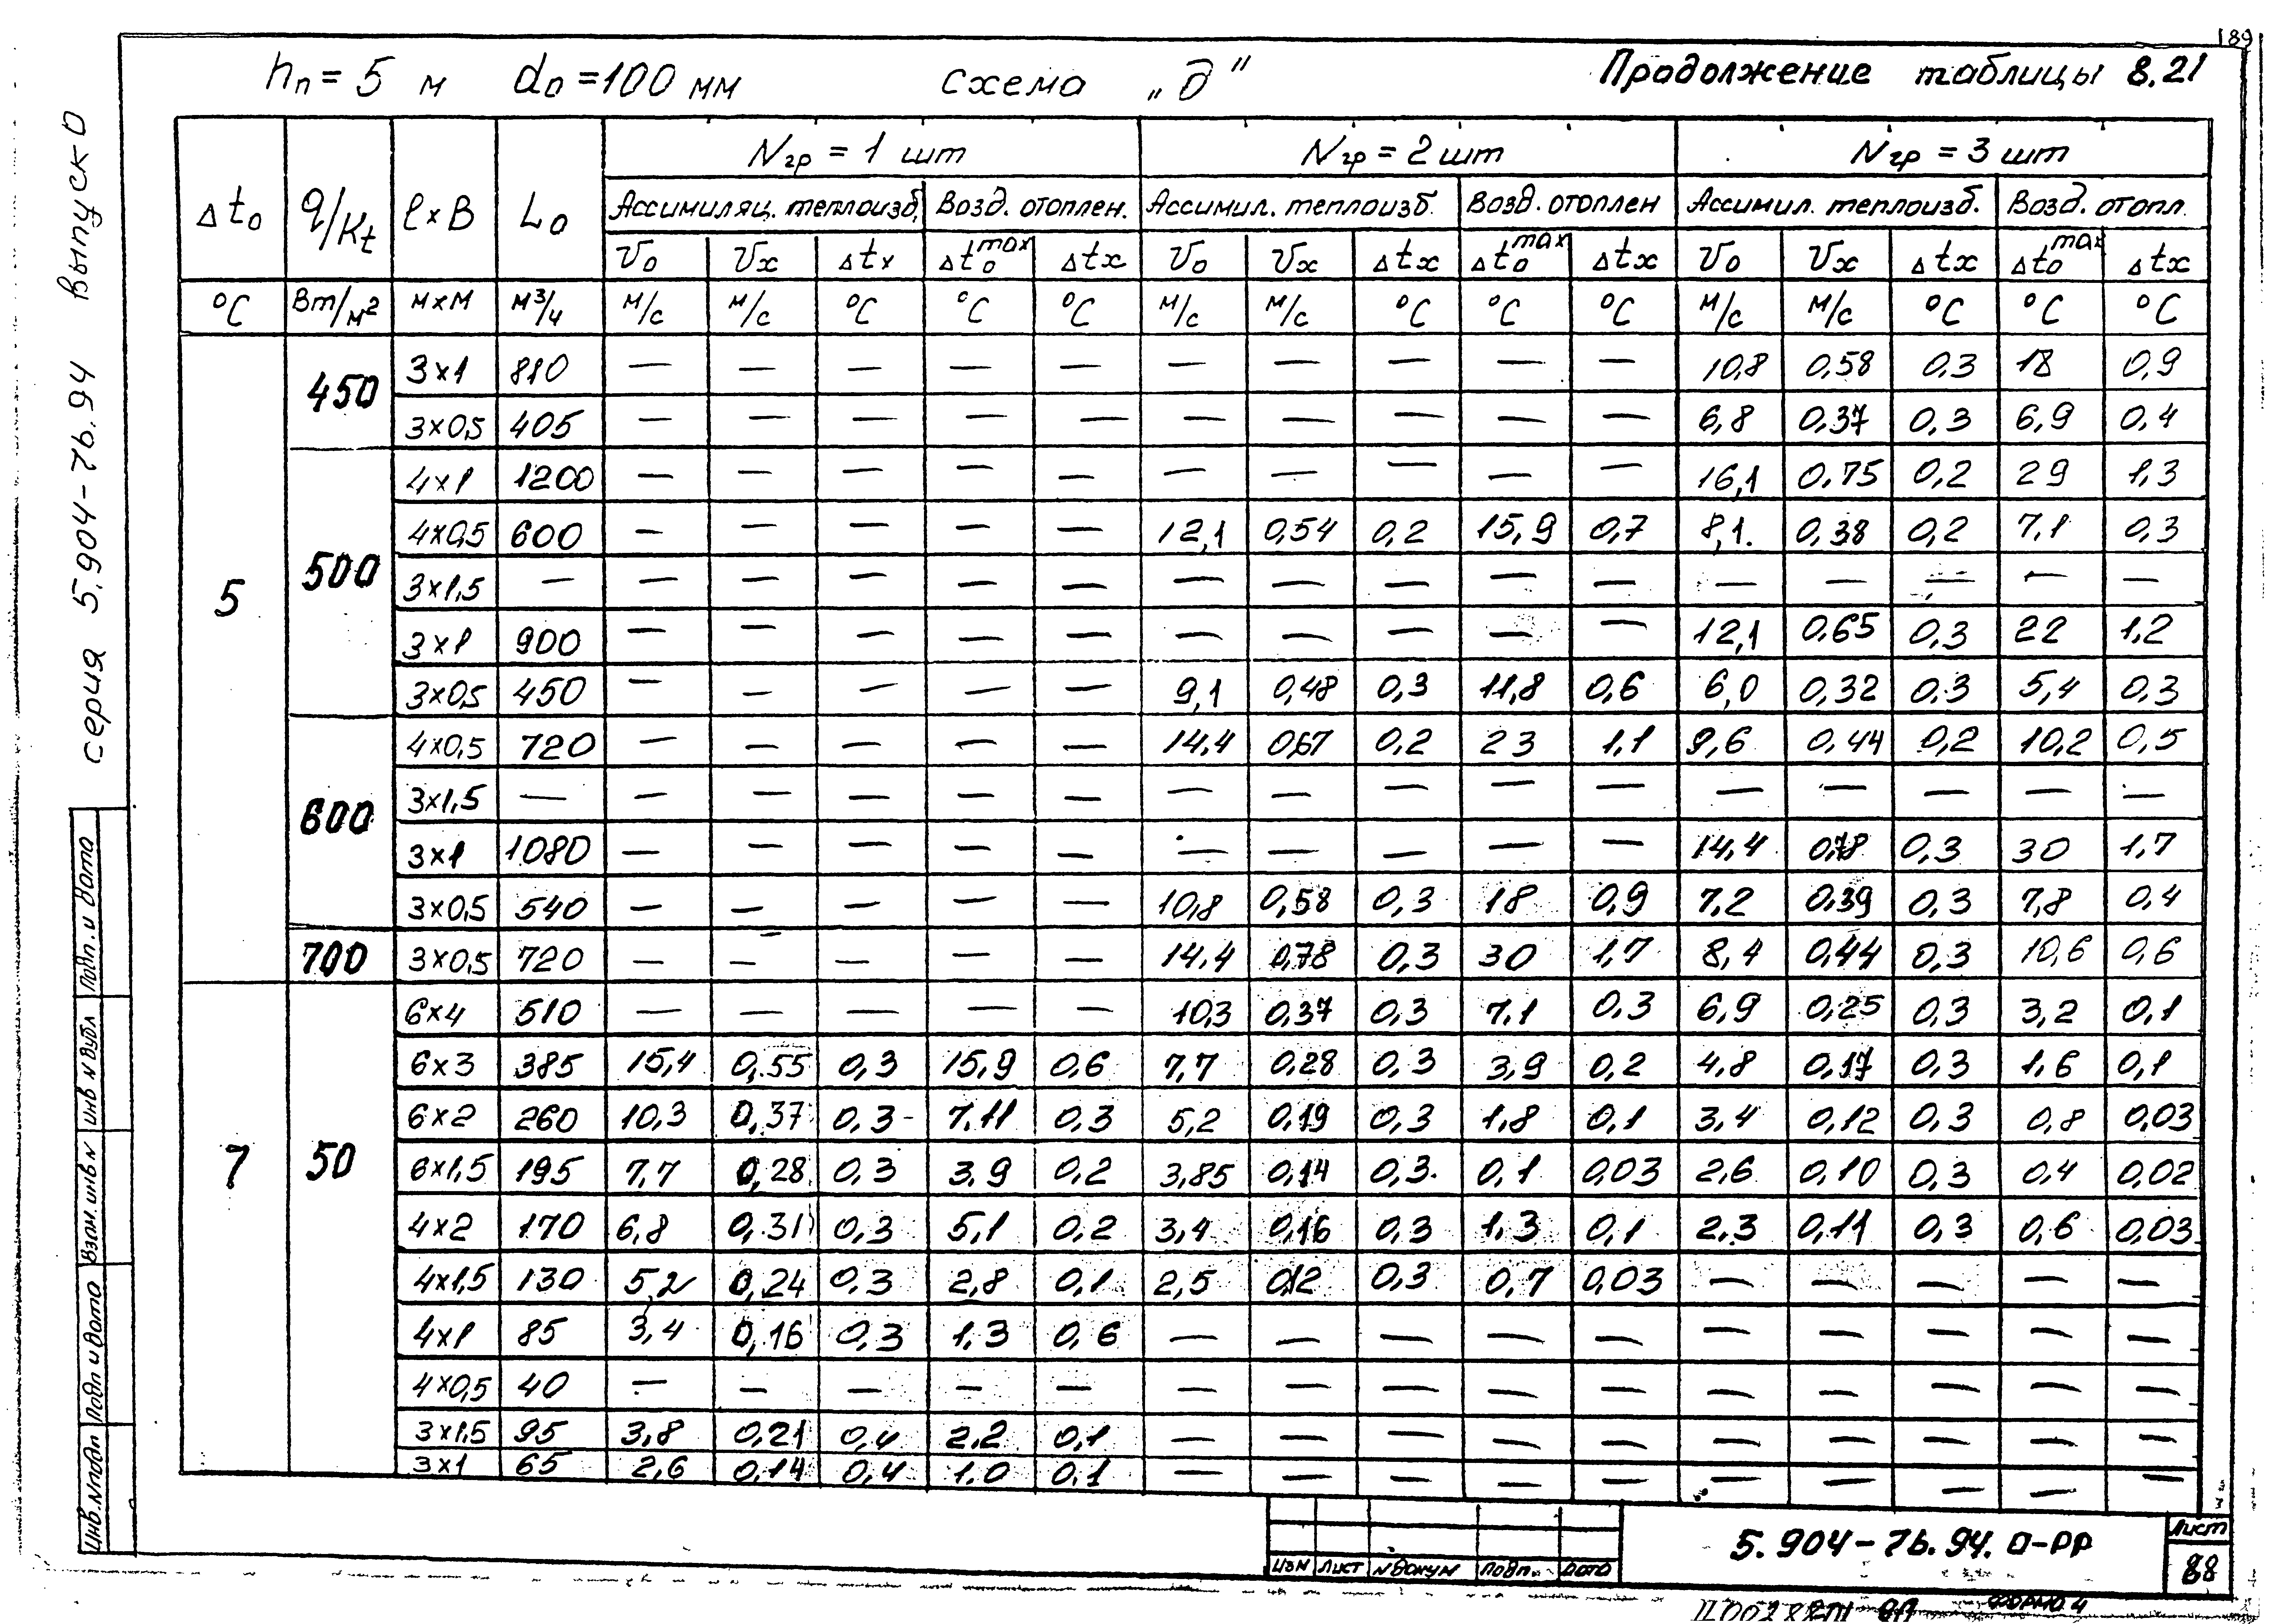 189
hп = 5 м dо = 100 мм схема „д" Продолжение таблицы 8.21
серия 5.904-76.94 выпуск 0
Δtо q/Kt ℓ×B Lо Nгр = 1 шт Nгр = 2 шт Nгр = 3 шт
Ассимиляц. теплоизб. Возд. отоплен. Ассимил. теплоизб. Возд. отоплен Ассимил. теплоизб. Возд. отопл.
Vо Vх Δtх Δtо max Δtх Vо Vх Δtх Δtо max Δtх Vо Vх Δtх Δtо max Δtх
°C Вт/м² м×м м³/ч м/с м/с °C °C °C м/с м/с °C °C °C м/с м/с °C °C °C
5 450 3×1 810 — — — — — — — — — — 10,8 0,58 0,3 18 0,9
3×0,5 405 — — — — — — — — — — 6,8 0,37 0,3 6,9 0,4
500 4×1 1200 — — — — — — — — — — 16,1 0,75 0,2 29 1,3
4×0,5 600 — — — — — 12,1 0,54 0,2 15,9 0,7 8,1. 0,38 0,2 7,1 0,3
3×1,5 — — — — — — — — — — — — — — — —
3×1 900 — — — — — — — — — — 12,1 0,65 0,3 22 1,2
3×0,5 450 — — — — — 9,1 0,48 0,3 11,8 0,6 6,0 0,32 0,3 5,4 0,3
600 4×0,5 720 — — — — — 14,4 0,67 0,2 23 1,1 9,6 0,44 0,2 10,2 0,5
3×1,5 — — — — — — — — — — — — — — — —
3×1 1080 — — — — — — — — — — 14,4 0,78 0,3 30 1,7
3×0,5 540 — — — — — 10,8 0,58 0,3 18 0,9 7,2 0,39 0,3 7,8 0,4
700 3×0,5 720 — — — — — 14,4 0,78 0,3 30 1,7 8,4 0,44 0,3 10,6 0,6
7 50 6×4 510 — — — — — 10,3 0,37 0,3 7,1 0,3 6,9 0,25 0,3 3,2 0,1
6×3 385 15,4 0,55 0,3 15,9 0,6 7,7 0,28 0,3 3,9 0,2 4,8 0,17 0,3 1,6 0,1
6×2 260 10,3 0,37 0,3 7,11 0,3 5,2 0,19 0,3 1,8 0,1 3,4 0,12 0,3 0,8 0,03
6×1,5 195 7,7 0,28 0,3 3,9 0,2 3,85 0,14 0,3. 0,1 0,03 2,6 0,10 0,3 0,4 0,02
4×2 170 6,8 0,31 0,3 5,1 0,2 3,4 0,16 0,3 1,3 0,1 2,3 0,11 0,3 0,6 0,03
4×1,5 130 5,2 0,24 0,3 2,8 0,1 2,5 0,12 0,3 0,7 0,03 — — — — —
4×1 85 3,4 0,16 0,3 1,3 0,6 — — — — — — — — — —
4×0,5 40 — — — — — — — — — — — — — — —
3×1,5 95 3,8 0,21 0,4 2,2 0,1 — — — — — — — — — —
3×1 65 2,6 0,14 0,4 1,0 0,1 — — — — — — — — — —
Инв. № подл Подп и дата Взам. инв № Инв № дубл Подп. и дата
Изм Лист № докум Подп. Дата
5.904-76.94.0-РР
Лист
88
Формат 4